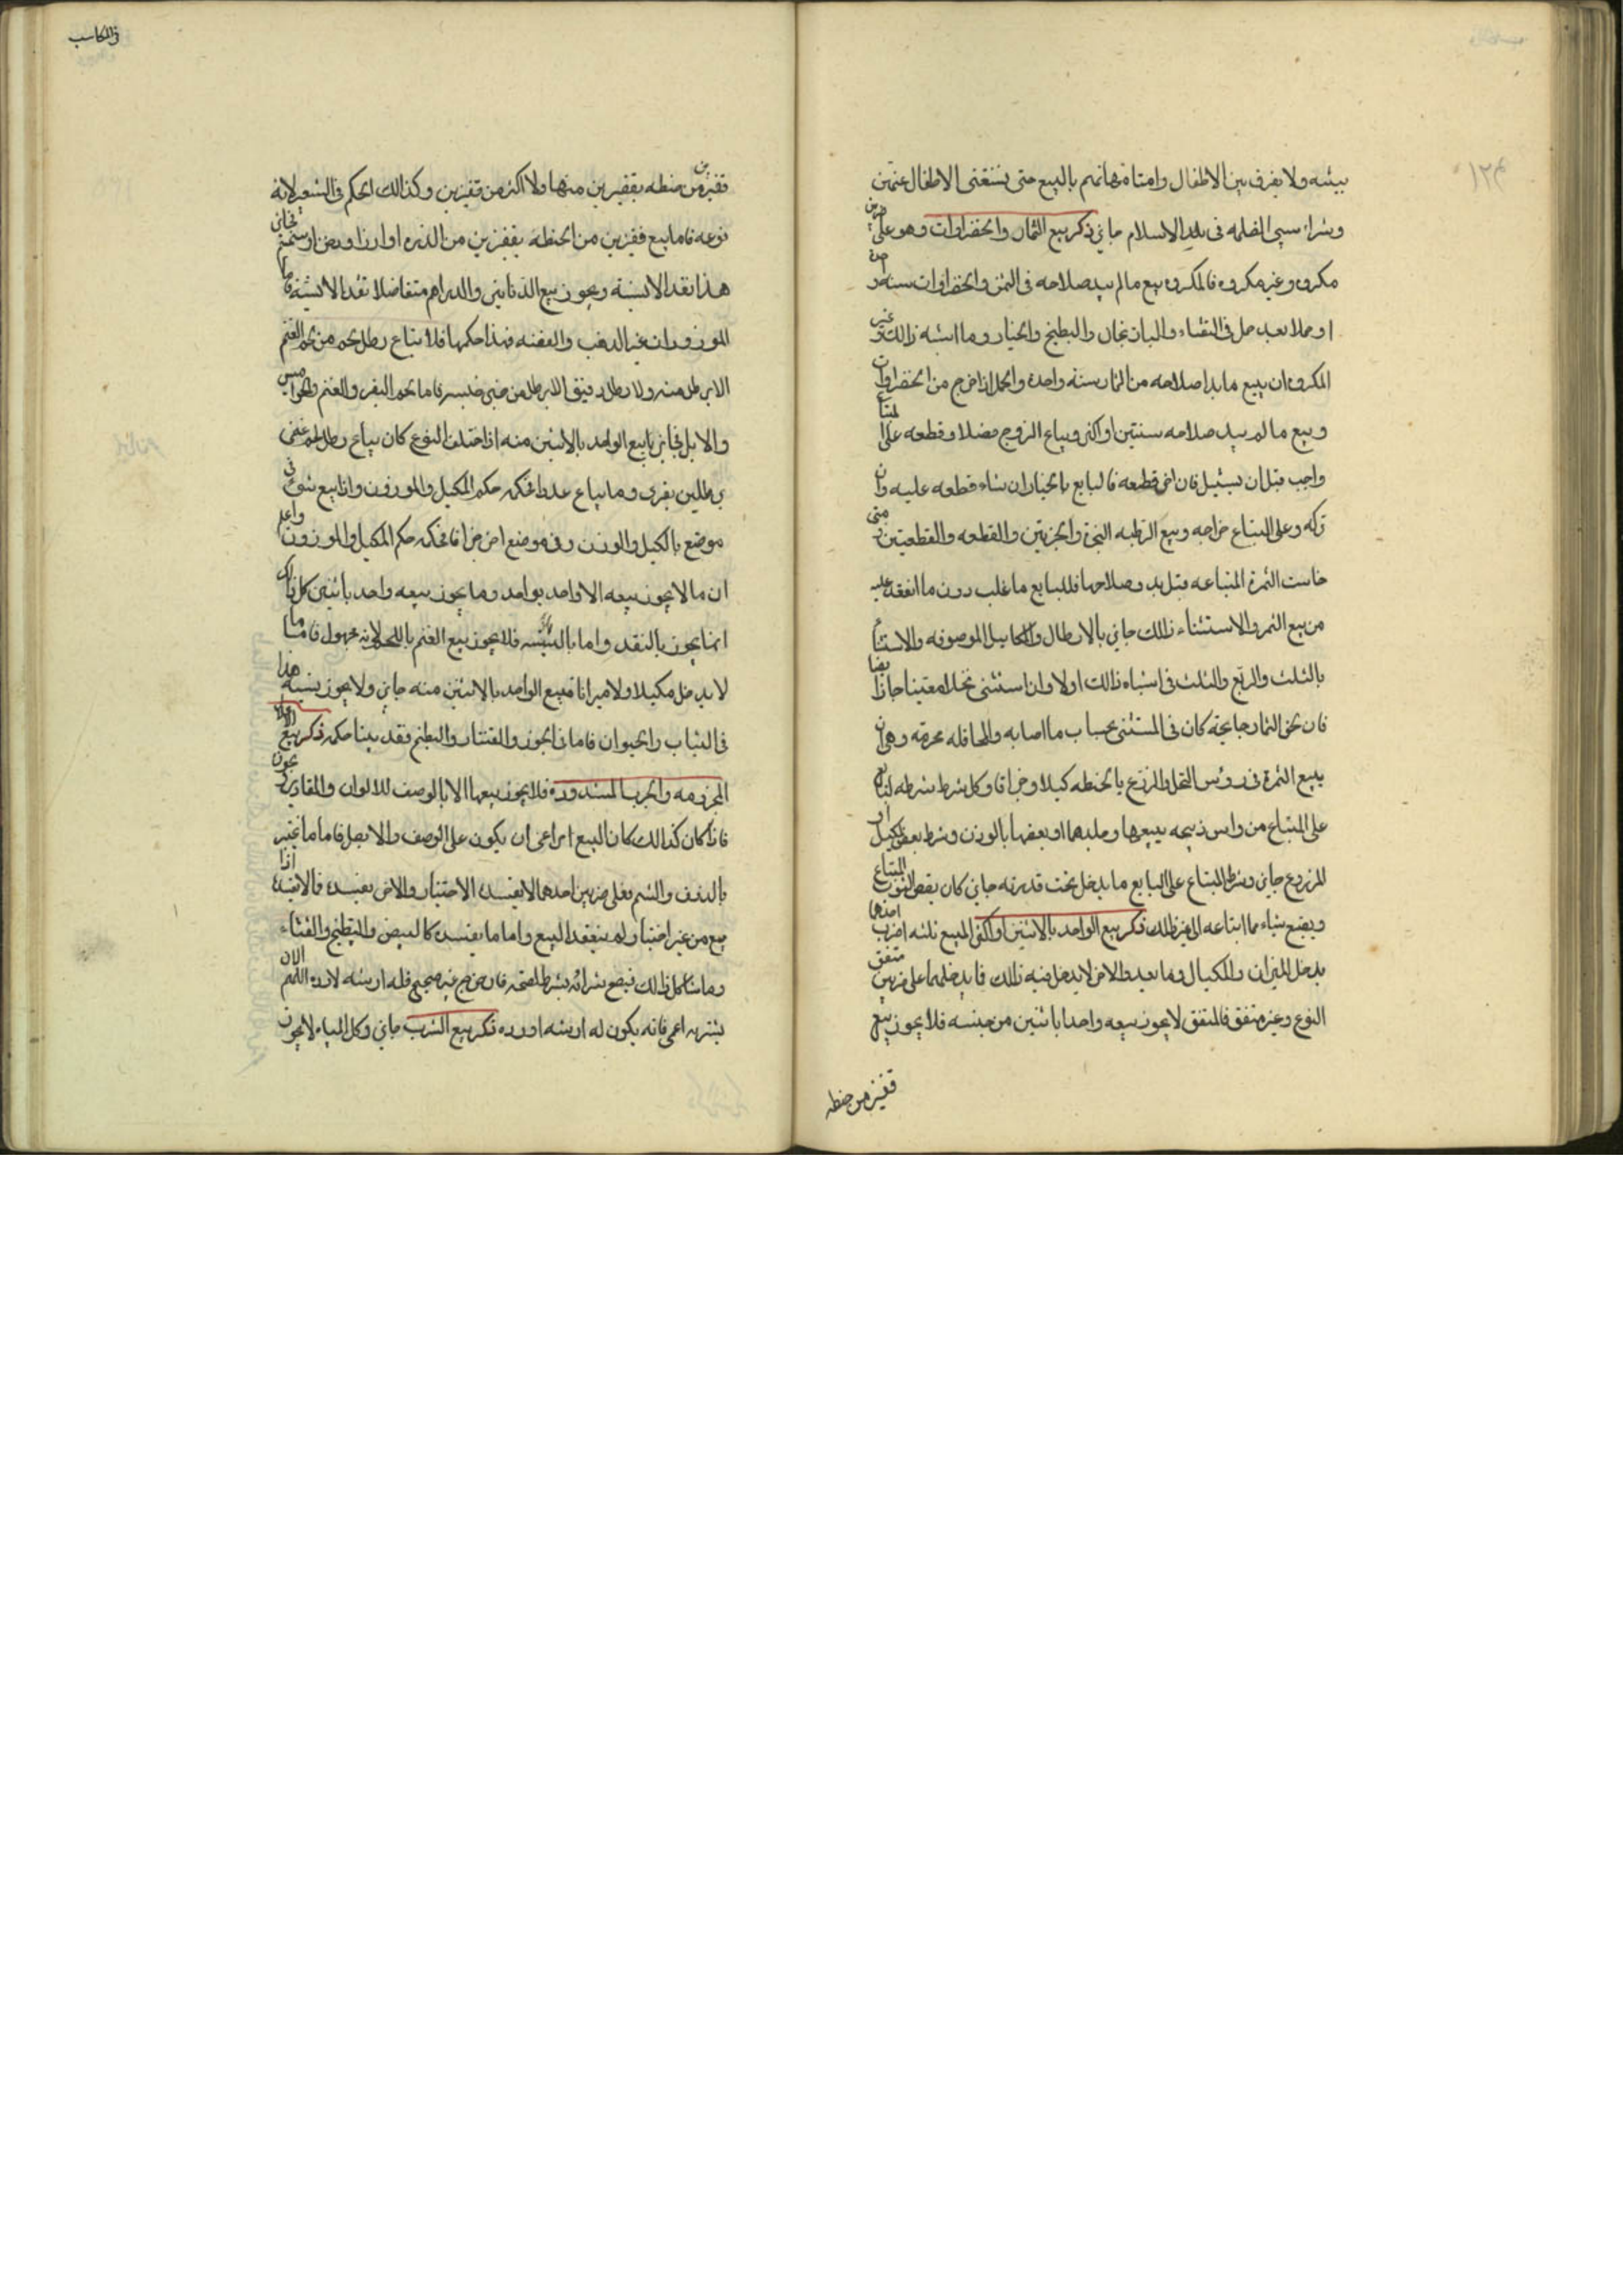 ١٢٣
بيئه ولا يفرق بين الاطفال وامتا مهاتهم بالبيع حتى يستغنى الاطفال عنهن
وشراء سبي الظلمه فى بلد الاسلام جايز ذكر بيع الثمار والخضراوات وهو على ضربين
مكروه وغير مكروه فالمكروه بيع ما لم يبد صلاحه فى الثمر والخضراوات سنه
او حملا بعد حمل فى القثاء والباذنجان والبطيخ والخيار وما اشبه ذالك وغير
المكروه ان يبيع ما بدا صلاحه من الثمار سنة واحدة والحمل اذا خرج من الخضراوات
وبيع ما لم يبد صلاحه سنتين او اكثر ويباع الزرع فضلا وقطعه على المبتاع
واجب قبل ان يسنبل فان اخر قطعه فالبايع بالخيار ان شاء قطعه عليه وان
تركه وعلى المبتاع خراجه وبيع الرطبه الجزة والجزتين والقطعه والقطعتين ومتى
خاست الثمرة المبتاعه قبل بدو صلاحها فللبايع ما غلب دون ما انعقد عليه
من بيع الثمر والاستثناء ذالك جايز بالارطال والمكاييل الموصوفه والاستثناء
بالثلث والربع والثلث فى اشباه ذالك اولا وان استثنى نخلا معينا جاز ايضا
فان لحق الثمار جايحة كان فى المستثنى بحساب ما اصابه والمحاقله محرمة وهى ان
يبيع الثمرة فى رؤس النخل والزرع بالحنطه كيلا وجزافا وكل شرط شرطه البايع
على المبتاع من راس ذبيحه يبيعها وجلدهما او بعضها بالوزن وشرط بعض المكيل او
المزروع جايز وشرط المبتاع على البايع ما يدخل تحت قدرته جايز كان يقصر الثوب المبتاع
ويصبغ شياء مما ابتاعه الى غير ذالك ذكر بيع الواحد بالاثنين واكثر المبيع ثلثه اضرب احدها
يدخل الميزان والمكيال وما يعد والاخر لا يدخل فيه ذالك فما يدخلهما على ضربين متفق
النوع وغير متفق فالمتفق لا يجوز بيعه واحدا باثنين من جنسه فلا يجوز بيع
قفيز من حنطه
فى المكاسب
قفيز من حنطه بقفيزين منها ولا اكثر من قفيزين وكذالك الحكم فى الشعير لانه
نوعه فاما بيع قفيزين من الحنطه بقفزين من الذره او ارز او دهن او سمسم فجايز
هذا نقدا لا نسية ويجوز بيع الدنانير والدراهم متفاضلا نقدا لا نسية فاما
الموزون غير الذهب والفضه فهذا حكمها فلا يباع رطل لحم من لحم الغنم
الا برطل منه ولا رطل دقيق الا برطل من خبز جنسه فاما لحم البقر والغنم والجواميس
والابل فجايز بيع الواحد بالاثنين منه اذا اختلف النوع كان يباع رطل لحم غنمى
برطلين بقرى وما يباع عددا فحكمه حكم المكيل والموزون واذا بيع شئ فى
موضع بالكيل والوزن وفى موضع اخر جزافا فحكمه حكم المكيل والموزون واعلم
ان ما لا يجوز بيعه الا واحد بواحد وما يجوز بيعه واحد باثنين كل ذالك
انما يجوز بالنقد واما بالنسيه فلا يجوز بيع الغنم باللحم لانه مجهول فاما ما
لا يدخل مكيلا ولا ميزانا فبيع الواحد بالاثنين منه جايز ولا يجوز نسيه هذا
فى الثياب والحيوان فاما فى الجوز والقثاء والبطيخ فقد بينا حكمه ذكر بيع الاعدال
المجزومه والجرب المشدوده فلا يجوز بيعها الا بالوصف للالوان والمقادير
فاذا كان كذالك كان البيع يراعى ان يكون على الوصف والا بطل فاما ما يختبر
بالذوق والشم فعلى ضربين احدهما لا يفسده الاختبار والاخر يفسده فالاول اذا
بيع من غير اختبار لم ينعقد البيع واما ما يفسده كالبيض والبطيخ والقثاء
وما شاكل ذالك فبيع شرائه بشرط الصحه فان خرج غير صحيح فله ارشه لا رده اللهم الا ان
يشتريه اعمى فانه يكون له ارشه او رده ذكر بيع الشرب جايز وكل المياه لا يجوز